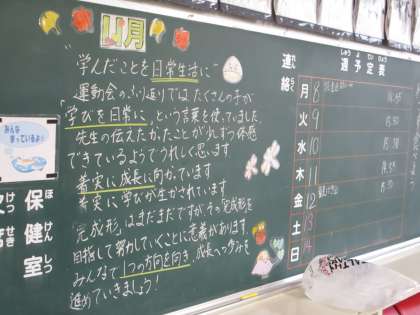 11月
“学んだことを日常生活に”
運動会のふり返りでは、たくさんの子が
学びを日常に、という言葉を使っていました。
先生の伝えたかったことが、少しずつ体感
できているようでうれしく思います。
着実に成長に向かっています。
着実に学びが生かされています。
完成形はまだまだですが、その完成形を
目指して努力していくことに意義があります。
みんなで1つの方向を向き、成長へのチカラを
進めていきましょう！
みんな
まっているよ！
保健室
ほけんしつ
欠席
けっせき
連給
週予定表
しゅうよていひょう
月 8
火 9
水 10
木 11
金 12
土 13
日 14